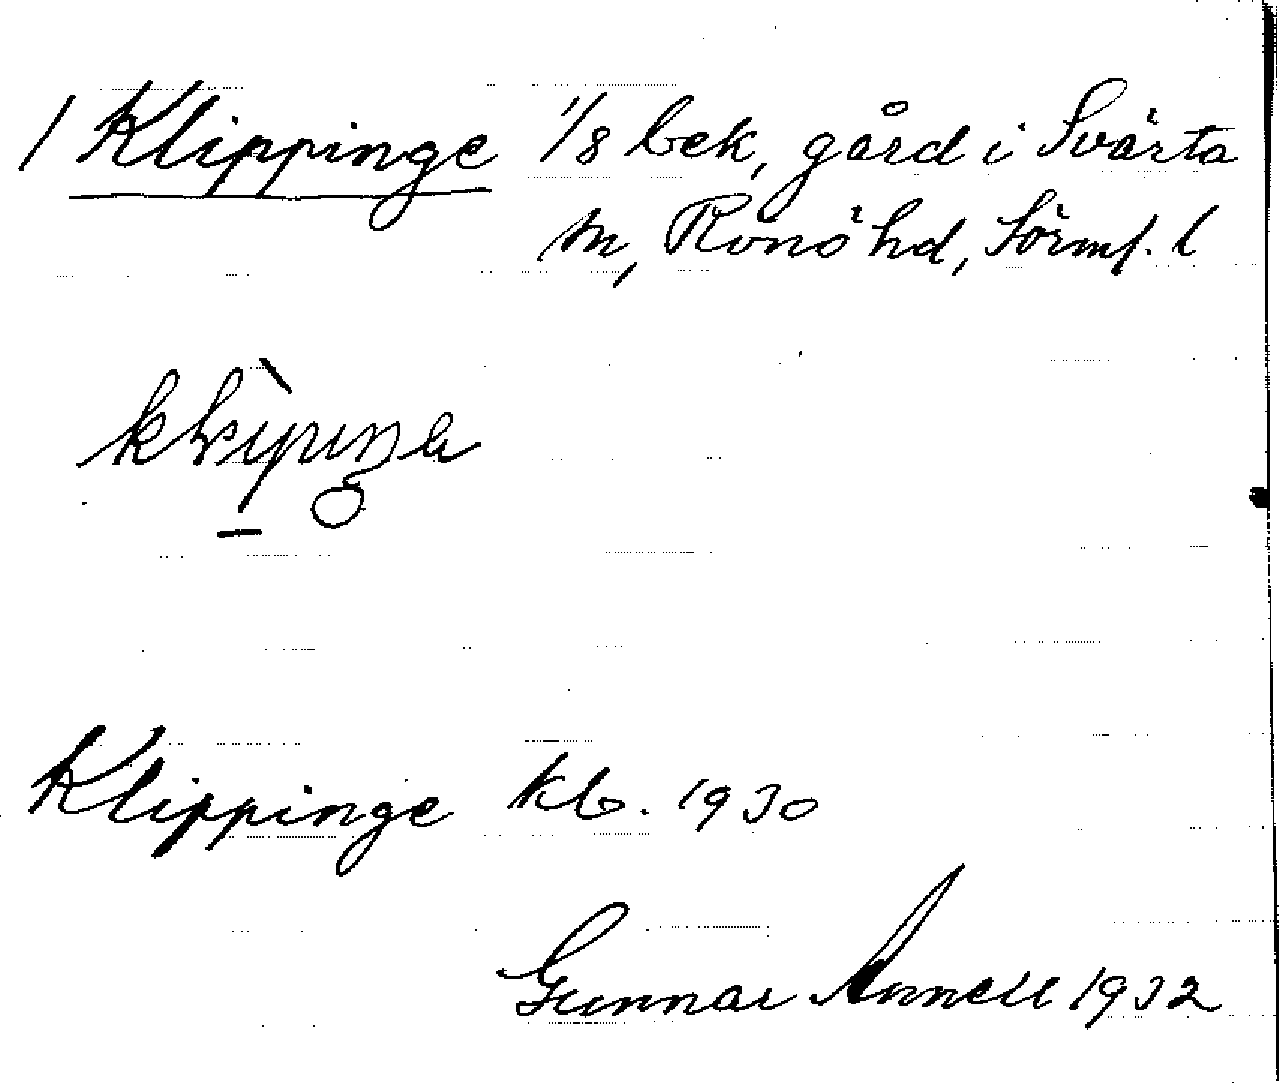 1 Klippinge 1/8 bek, gård i Svärta
sn, Rönö hd, Sörml. l
Klippinge kb. 1930
Gunnar Annell 1932